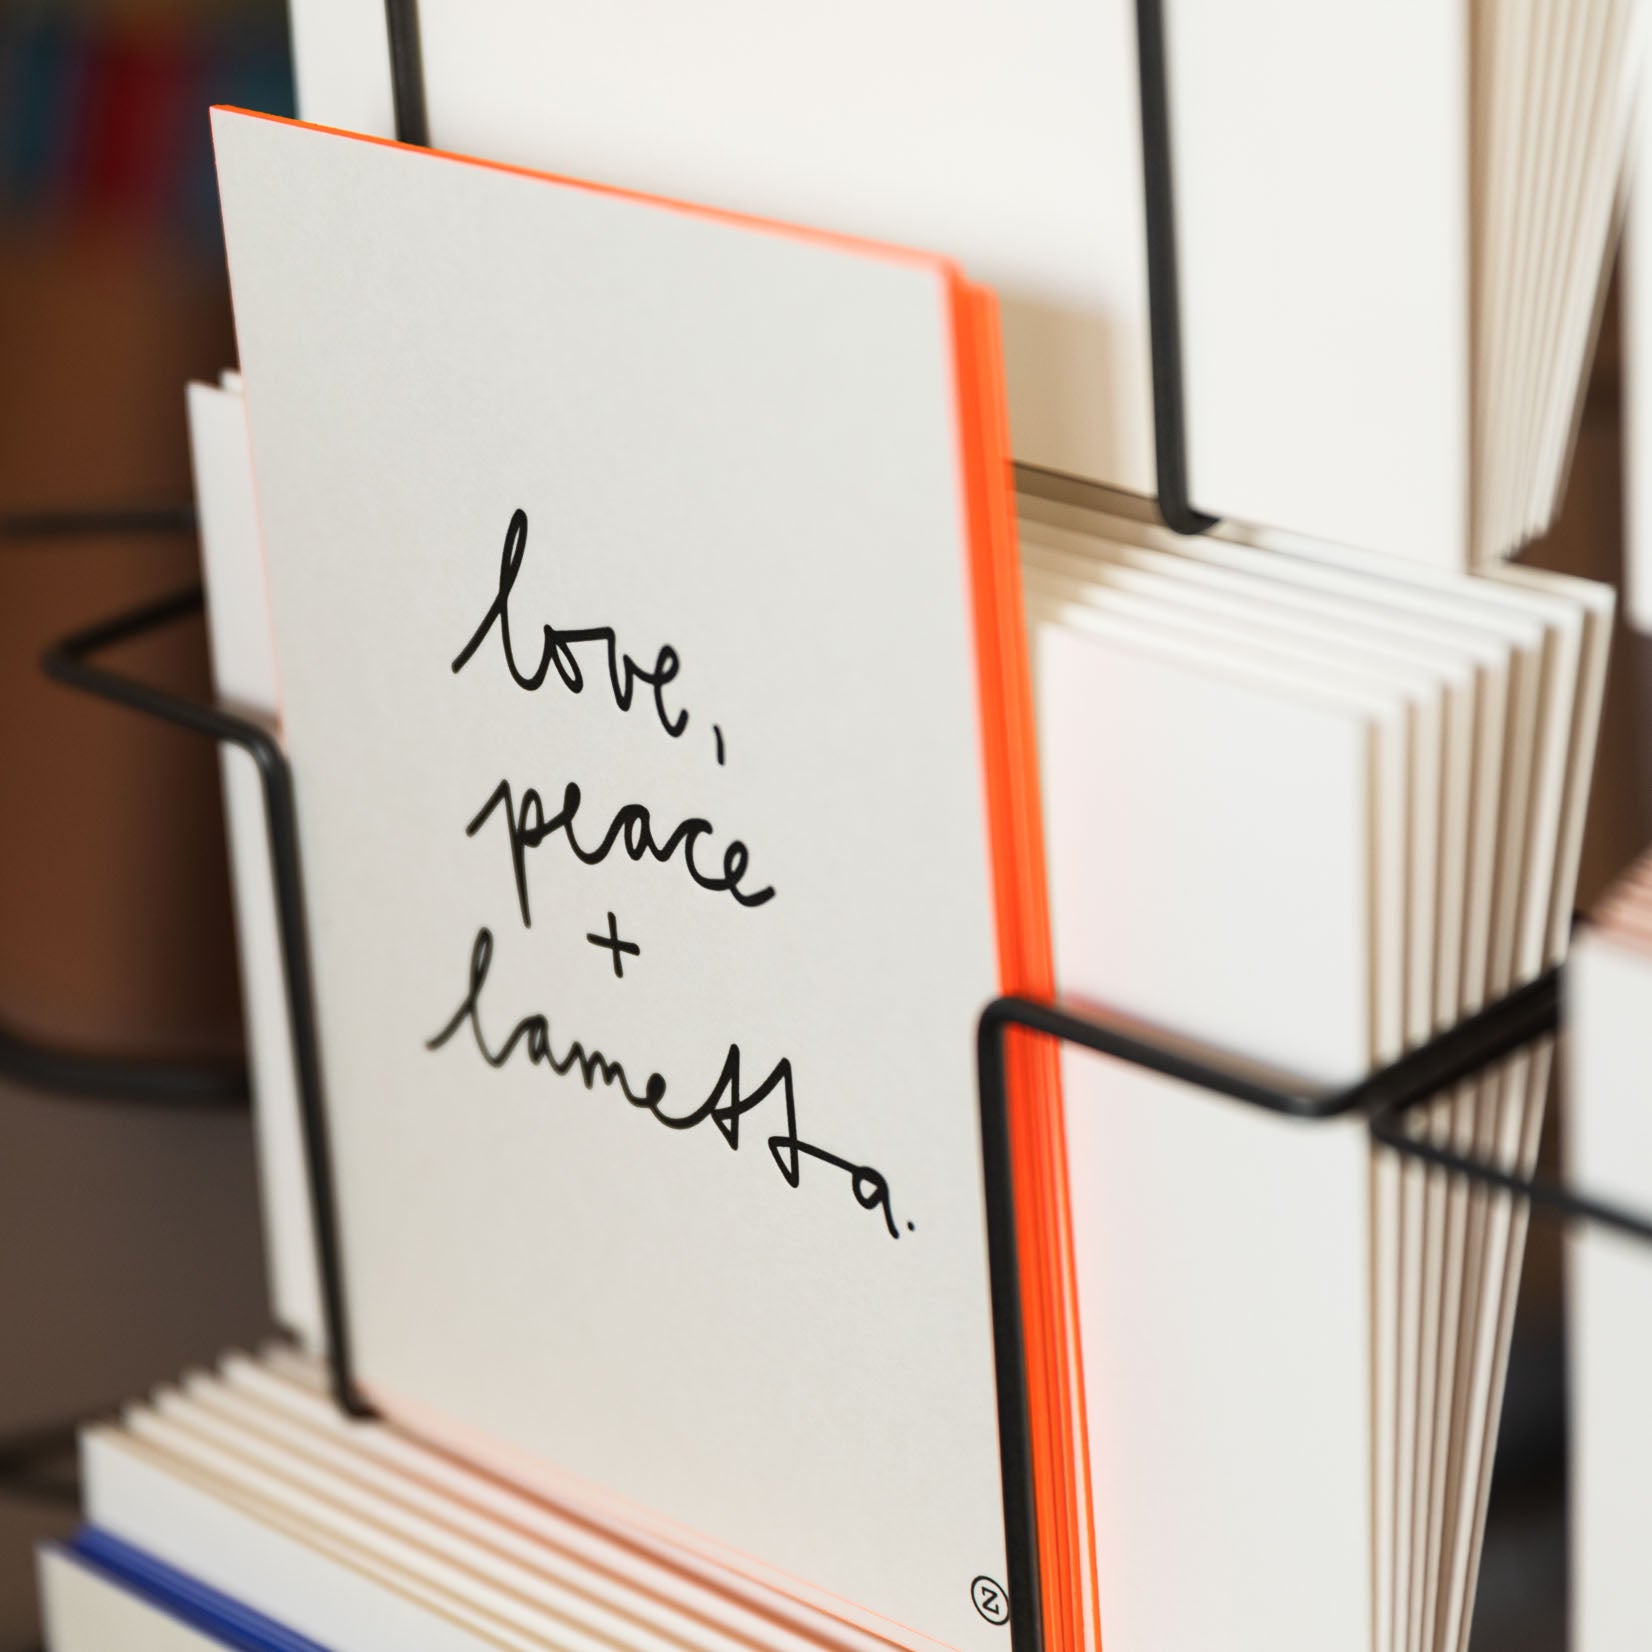 love,
peace
+
lametta.
N